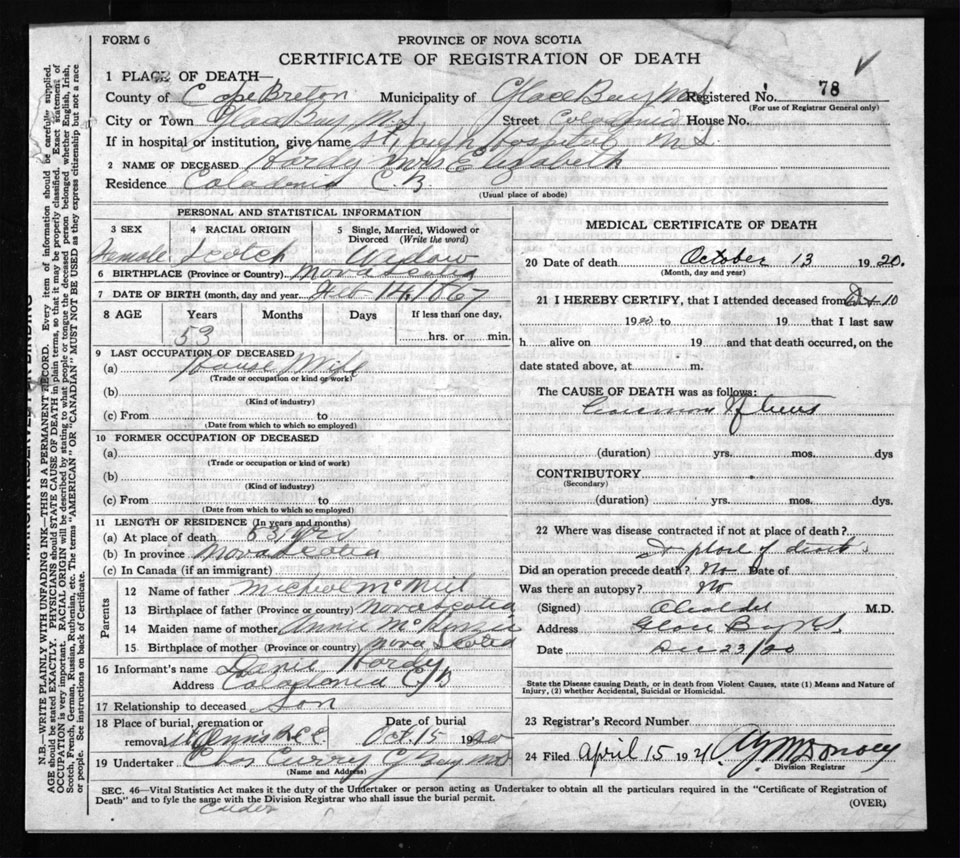 FORM 6
PROVINCE OF NOVA SCOTIA
CERTIFICATE OF REGISTRATION OF DEATH
1 PLACE OF DEATH—
County of Cape Breton Municipality of Glace Bay Registered No. 78
(For use of Registrar General only)
City or Town Glace Bay, N.S Street Caladonia House No.
If in hospital or institution, give name St Joseph Hospital N.S.
2 NAME OF DECEASED Hardy Mrs Elizabeth
Residence Caladonia C.B.
(Usual place of abode)
PERSONAL AND STATISTICAL INFORMATION
3 SEX 4 RACIAL ORIGIN 5 Single, Married, Widowed or Divorced (Write the word)
Female Scotch Widow
6 BIRTHPLACE (Province or Country) Nova Scotia
7 DATE OF BIRTH (month, day and year Feb 14, 1867
8 AGE Years Months Days If less than one day,
53 hrs. or min.
9 LAST OCCUPATION OF DECEASED
(a) House Wife
(Trade or occupation or kind or work)
(b)
(Kind of industry)
(c) From to
(Date from which to which so employed)
10 FORMER OCCUPATION OF DECEASED
(a)
(Trade or occupation or kind of work)
(b)
(Kind of industry)
(c) From to
(Date from which to which so employed)
11 LENGTH OF RESIDENCE (In years and months)
(a) At place of death 53 yrs
(b) In province Nova Scotia
(c) In Canada (if an immigrant)
Parents
12 Name of father Michael McNeil
13 Birthplace of father (Province or country) Nova Scotia
14 Maiden name of mother Annie McKenzie
15 Birthplace of mother (Province or country) Nova Scotia
16 Informant's name Hardy
Address Caladonia C/B
17 Relationship to deceased Son
18 Place of burial, cremation or removal Date of burial
Oct. 15 1920
19 Undertaker Chas Curry G Bay NS
(Name and Address)
MEDICAL CERTIFICATE OF DEATH
20 Date of death October 13 1920.
(Month, day and year)
21 I HEREBY CERTIFY, that I attended deceased from Oct 10
1920 to 19 that I last saw
h alive on 19 and that death occurred, on the
date stated above, at m.
The CAUSE OF DEATH was as follows:
Carcinoma of Uterus
(duration) yrs. mos. dys
CONTRIBUTORY
(Secondary)
(duration) yrs. mos. dys.
22 Where was disease contracted if not at place of death?
place of death
Did an operation precede death? No Date of
Was there an autopsy? No
(Signed) M.D.
Address Glace Bay NS.
Date Dec 23/20
State the Disease causing Death, or in death from Violent Causes, state (1) Means and Nature of
Injury, (2) whether Accidental, Suicidal or Homicidal.
23 Registrar's Record Number
24 Filed April 15 1921
Division Registrar
SEC. 46—Vital Statistics Act makes it the duty of the Undertaker or person acting as Undertaker to obtain all the particulars required in the "Certificate of Registration of
Death" and to fyle the same with the Division Registrar who shall issue the burial permit.
(OVER)
N.B.—WRITE PLAINLY WITH UNFADING INK—THIS IS A PERMANENT RECORD. Every item of information should be carefully supplied.
AGE should be stated EXACTLY. PHYSICIANS should STATE CAUSE OF DEATH in plain terms, so that it may be properly classified. Exact statement of
OCCUPATION is very important. RACIAL ORIGIN will be described by stating to what people or tongue the deceased person belonged whether English, Irish,
Scotch, French, German, Russian, Ruthenian, etc. The terms "AMERICAN" OR "CANADIAN" MUST NOT BE USED as they express citizenship but not a race
or people. See instructions on back of Certificate.